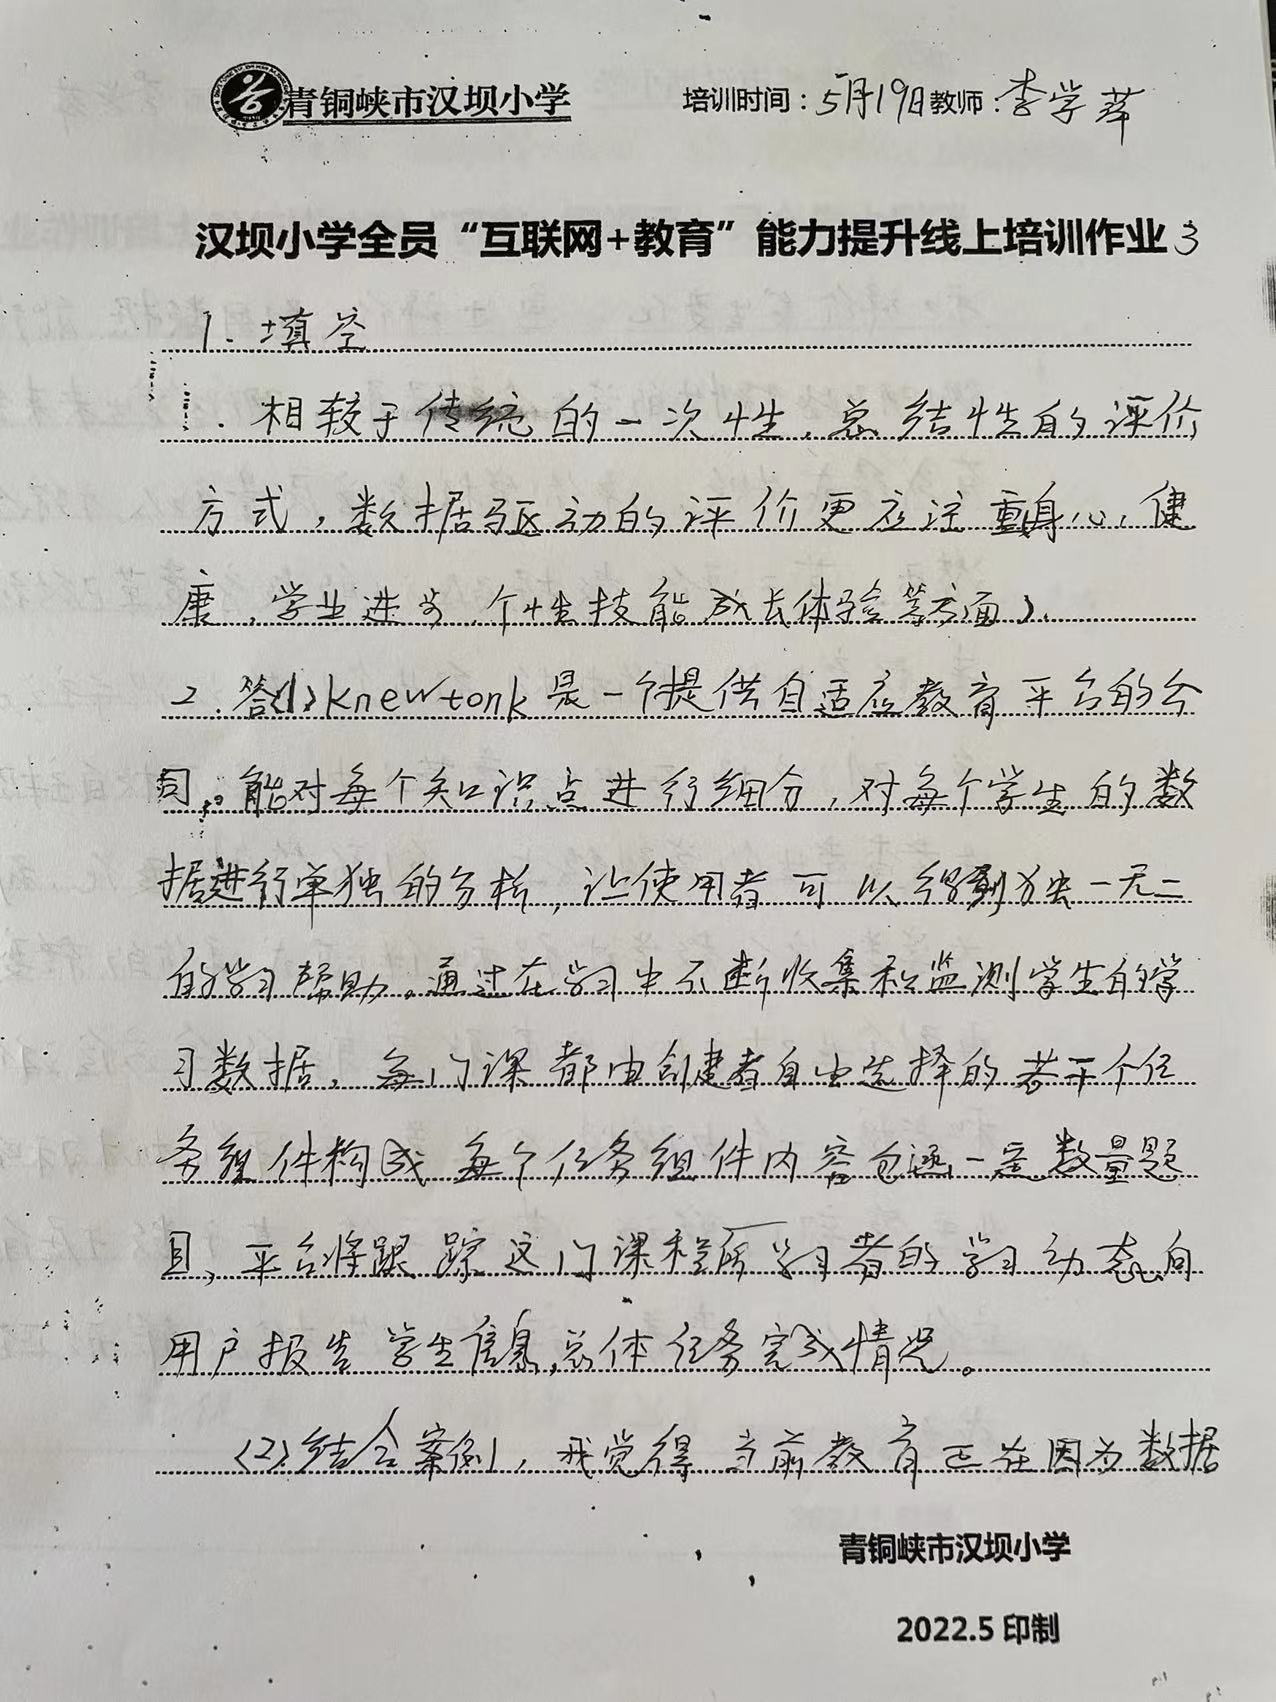 青铜峡市汉坝小学 培训时间：5月19日 教师：李学萍
汉坝小学全员“互联网+教育”能力提升线上培训作业3
1. 填空
1. 相较于传统的一次性，总结性的评价
方式，数据驱动的评价更应注重身心，健
康，学业进步，个性技能成长体验等方面）.
2. 答(1) knewtonk是一个提供自适应教育平台的公
司。能对每个知识点进行细分，对每个学生的数
据进行单独的分析，让使用者可以得到独一无二
的学习帮助。通过在学习中不断收集和监测学生的学
习数据，每门课都由创建者自由选择的若干个任
务组件构成 每个任务组件内容包涵一定数量题
目，平台将跟踪这门课程所学习者的学习动态向
用户报告学生信息，总体任务完成情况。
(2)结合案例，我觉得当前教育正在因为数据
青铜峡市汉坝小学
2022.5 印制